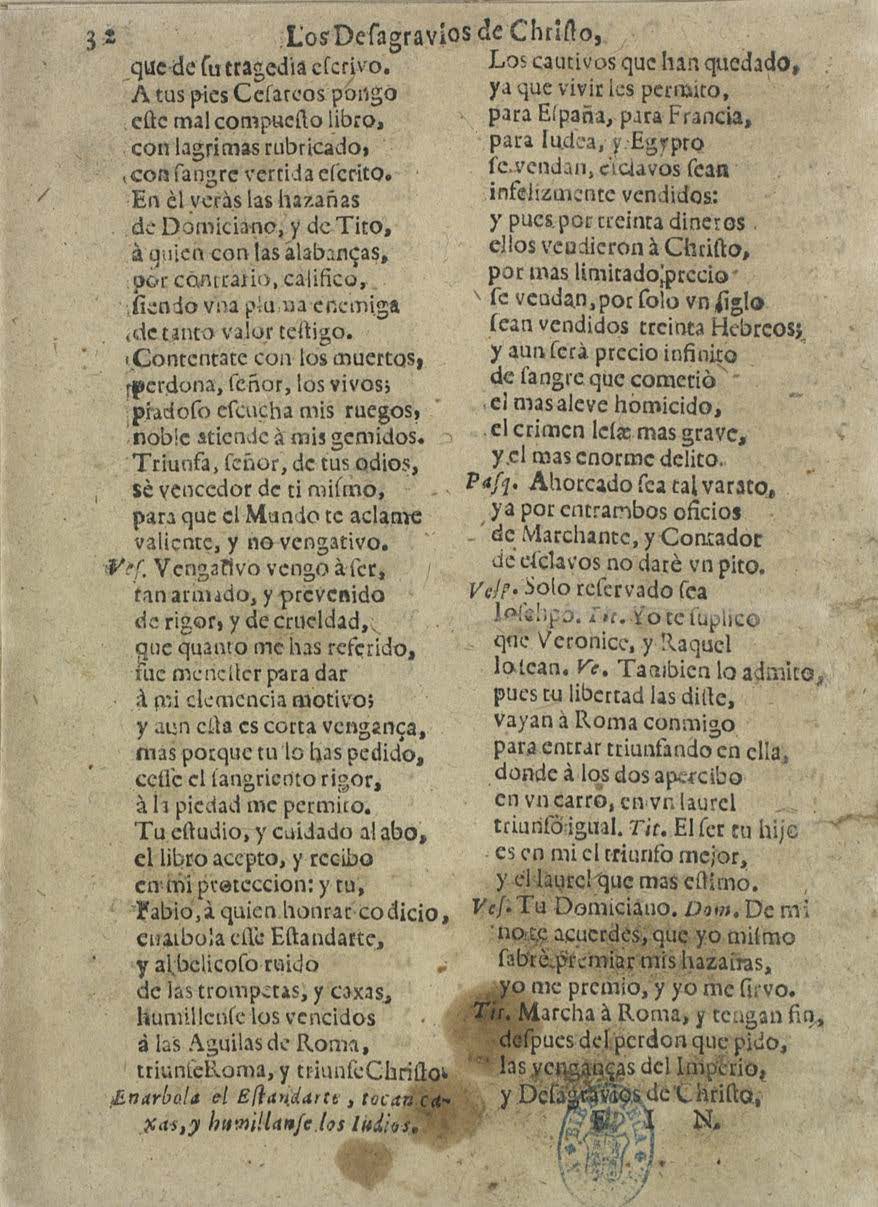 32 Los Desagravios de Christo,
que de su tragedia escrivo.
A tus pies Cesareos pongo
este mal compuesto libro,
con lagrimas rubricado,
con sangre vertida escrito.
En èl veràs las hazañas
de Domiciano, y de Tito,
à quien con las alabanças,
por contrario, califico,
siendo vna pluma enemiga
de tanto valor testigo.
Contentate con los muertos,
perdona, señor, los vivos;
piadoso escucha mis ruegos,
noble atiende à mis gemidos.
Triunfa, señor, de tus odios,
sè vencedor de ti mismo,
para que el Mundo te aclame
valiente, y no vengativo.
Ves. Vengativo vengo à ser,
tan armado, y prevenido
de rigor, y de crueldad,
que quanto me has referido,
fue menester para dar
à mi clemencia motivo;
y aun esta es corta vengança,
mas porque tu lo has pedido,
cesse el sangriento rigor,
à la piedad me permito.
Tu estudio, y cuidado alabo,
el libro acepto, y recibo
en mi proteccion: y tu,
Fabio, à quien honrar codicio,
enarbola esse Estandarte,
y al belicoso ruido
de las trompetas, y caxas,
humillense los vencidos
à las Aguilas de Roma,
triunfe Roma, y triunfe Christo.
Enarbola el Estandarte, tocan ca-
xas, y humillanse los Iudios.
Los cautivos que han quedado,
ya que vivir les permito,
para España, para Francia,
para Iudea, y Egypto
se vendan, esclavos sean
infelizmente vendidos:
y pues por treinta dineros
ellos vendieron à Christo,
por mas limitado precio
se vendan, por solo vn siglo
sean vendidos treinta Hebreos;
y aun serà precio infinito
de sangre que cometiò
el mas aleve homicido,
el crimen lesæ mas grave,
y el mas enorme delito.
Pasq. Ahorcado sea tal varato,
ya por entrambos oficios
de Marchante, y Contador
de esclavos no darè vn pito.
Vesp. Solo reservado sea
Iosephpo. Tit. Yo te suplico
que Veronice, y Raquel
lo sean. Ve. Tambien lo admito,
pues tu libertad las diste,
vayan à Roma conmigo
para entrar triunfando en ella,
donde à los dos apercibo
en vn carro, en vn laurel
triunfo igual. Tit. El ser tu hijo
es en mi el triunfo mejor,
y el laurel que mas estimo.
Ves. Tu Domiciano. Dom. De mi
no te acuerdes, que yo mismo
sabrè premiar mis hazañas,
yo me premio, y yo me sirvo.
Tit. Marcha à Roma, y tengan fin,
despues del perdon que pido,
las venganças del Imperio,
y Desagravios de Christo,
F I N.